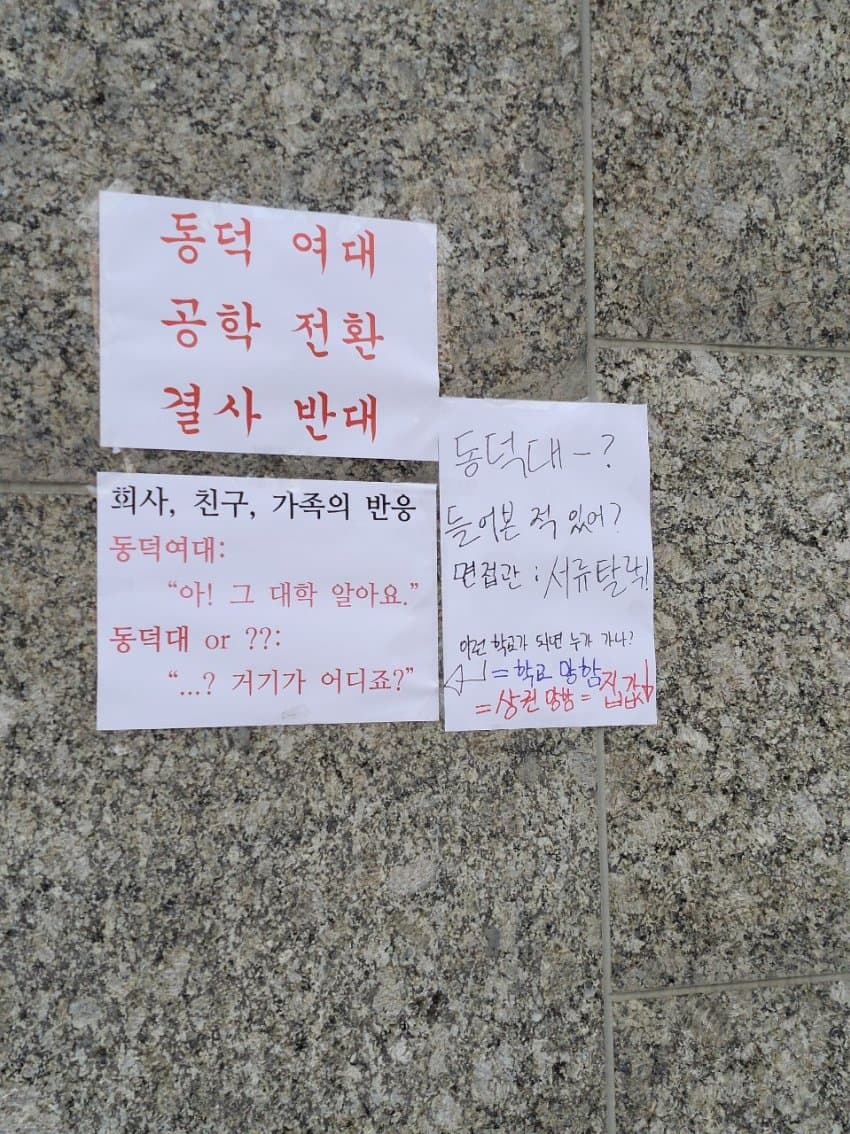 동덕 여대
공학 전환
결사 반대
회사, 친구, 가족의 반응
동덕여대:
"아! 그 대학 알아요."
동덕대 or ??:
"...? 거기가 어디죠?"
동덕대 - ?
들어본 적 있어?
면접관 : 서류탈락!
이런 학교가 되면 누가 가냐?
= 학교 망함
= 상권 망함 = 집값↓